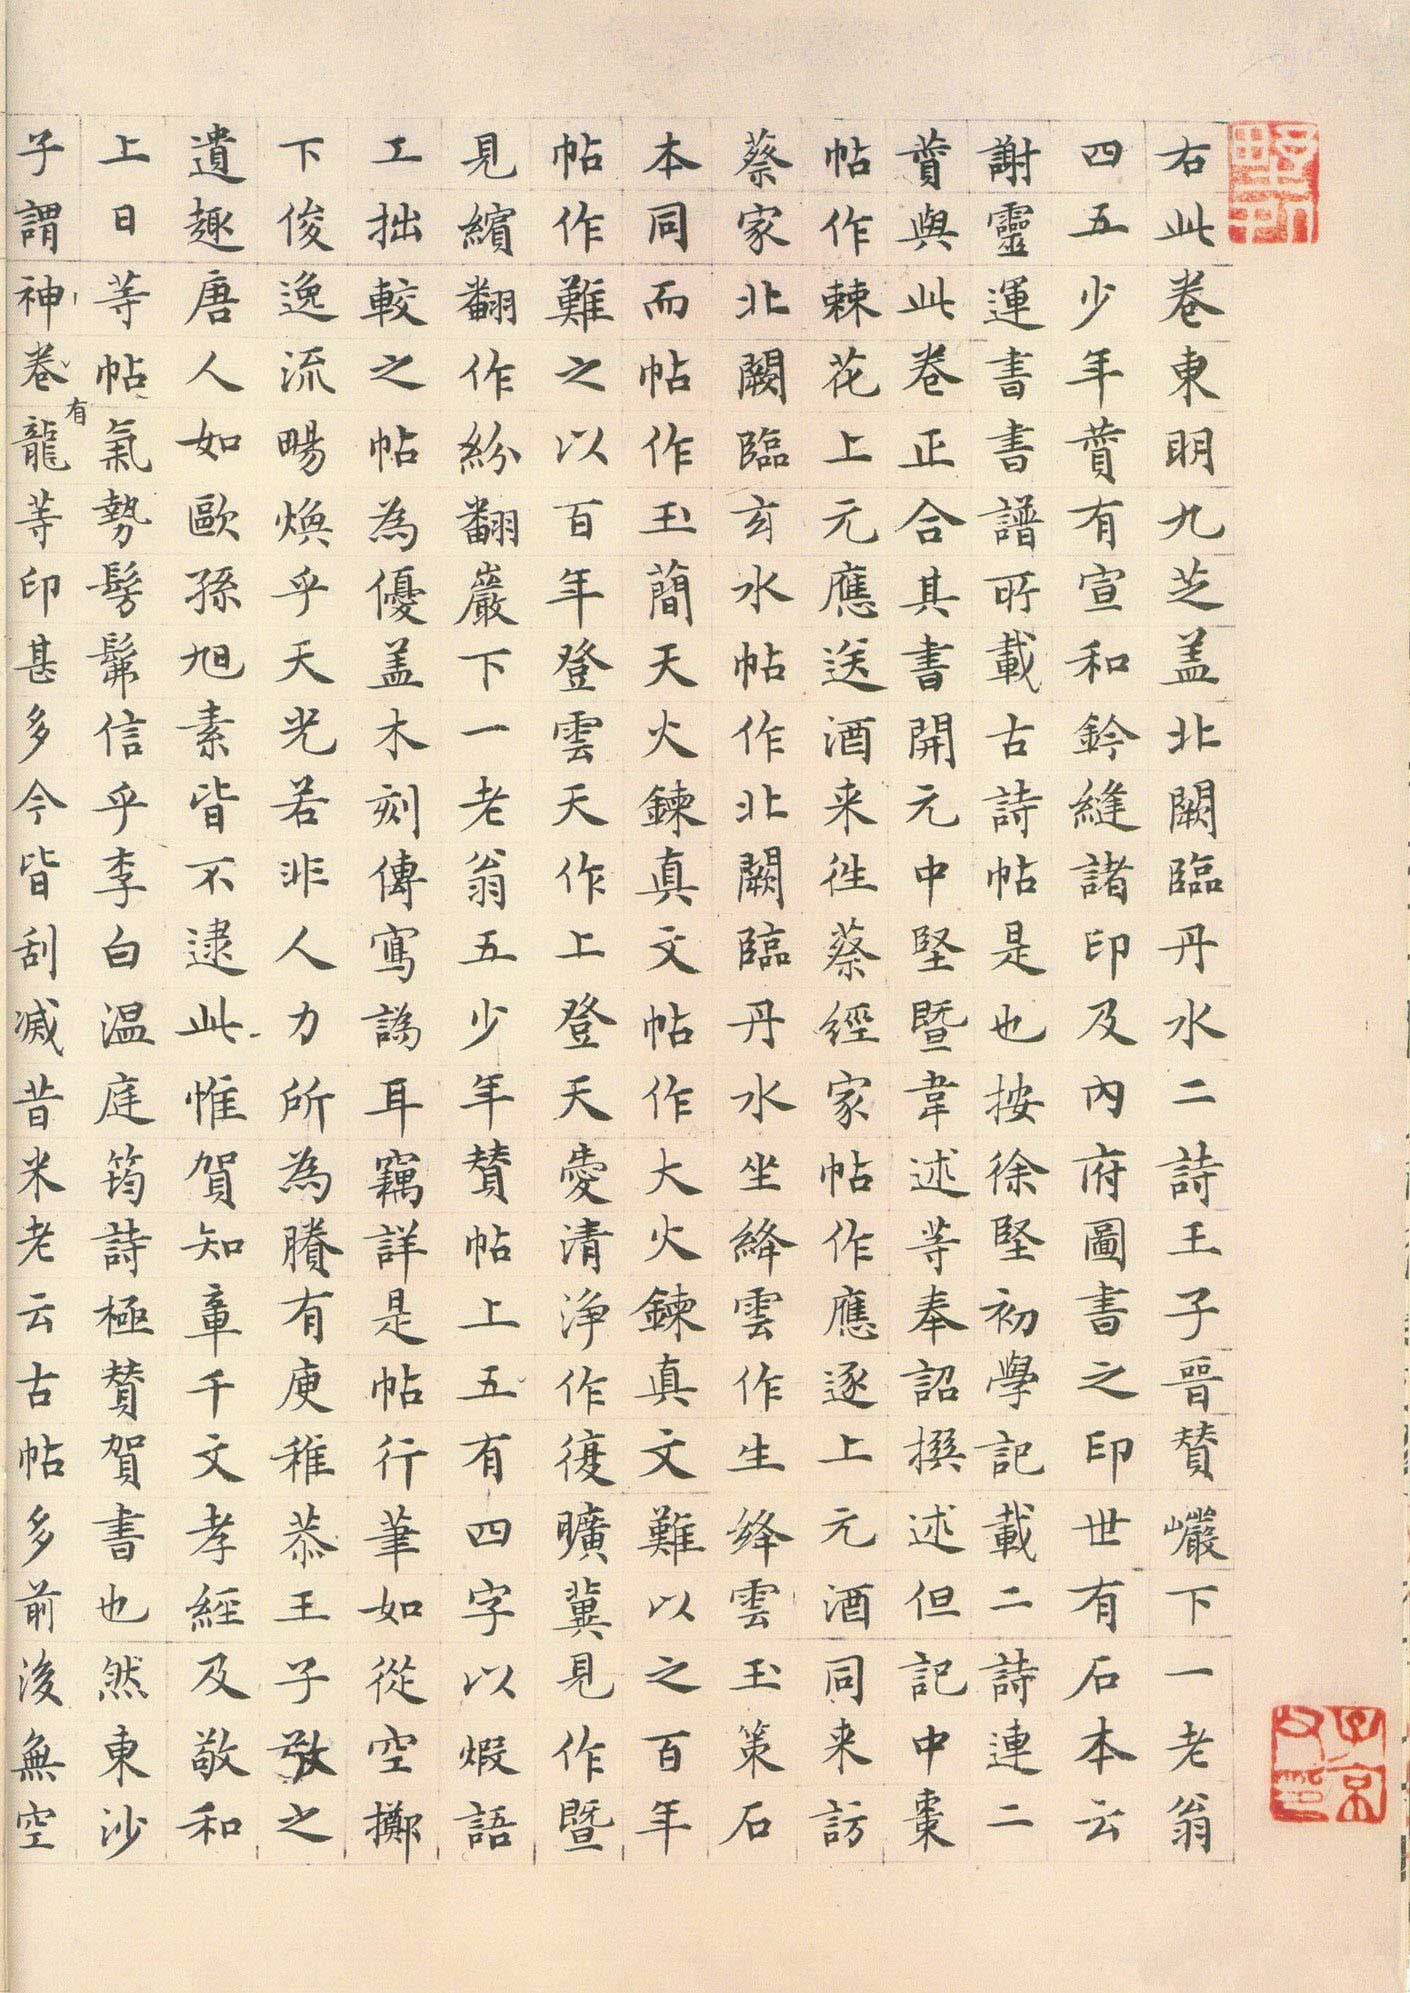 右此卷東明九芝盖北闕臨丹水二詩王子晉贊巖下一老翁
四五少年賛有宣和鈐縫諸印及內府圖書之印世有石本云
謝靈運書書譜所載古詩帖是也按徐堅初學記載二詩連二
賛與此卷正合其書開元中堅暨韋述等奉詔撰述但記中棗
帖作棘花上元應送酒来徃蔡經家帖作應逐上元酒同来訪
蔡家北闕臨玄水帖作北闕臨丹水坐絳雲作生絳雲玉策石
本同而帖作玉簡天火鍊真文帖作大火鍊真文難以之百年
帖作難之以百年登雲天作上登天愛清淨作復曠冀見作暨
見繽翻作紛翻巖下一老翁五少年贊帖上五有四字以煆語
工拙較之帖為優盖木刻傳寫譌耳竊詳是帖行筆如從空擲
下俊逸流暢煥乎天光若非人力所為賸有庾稚恭王子敬之
遺趣唐人如歐孫旭素皆不逮此惟賀知章千文孝經及敬和
上日等帖氣勢髣髴信乎李白温庭筠詩極贊賀書也然東沙
子謂神卷有龍等印甚多今皆刮滅昔米老云古帖多前後無空